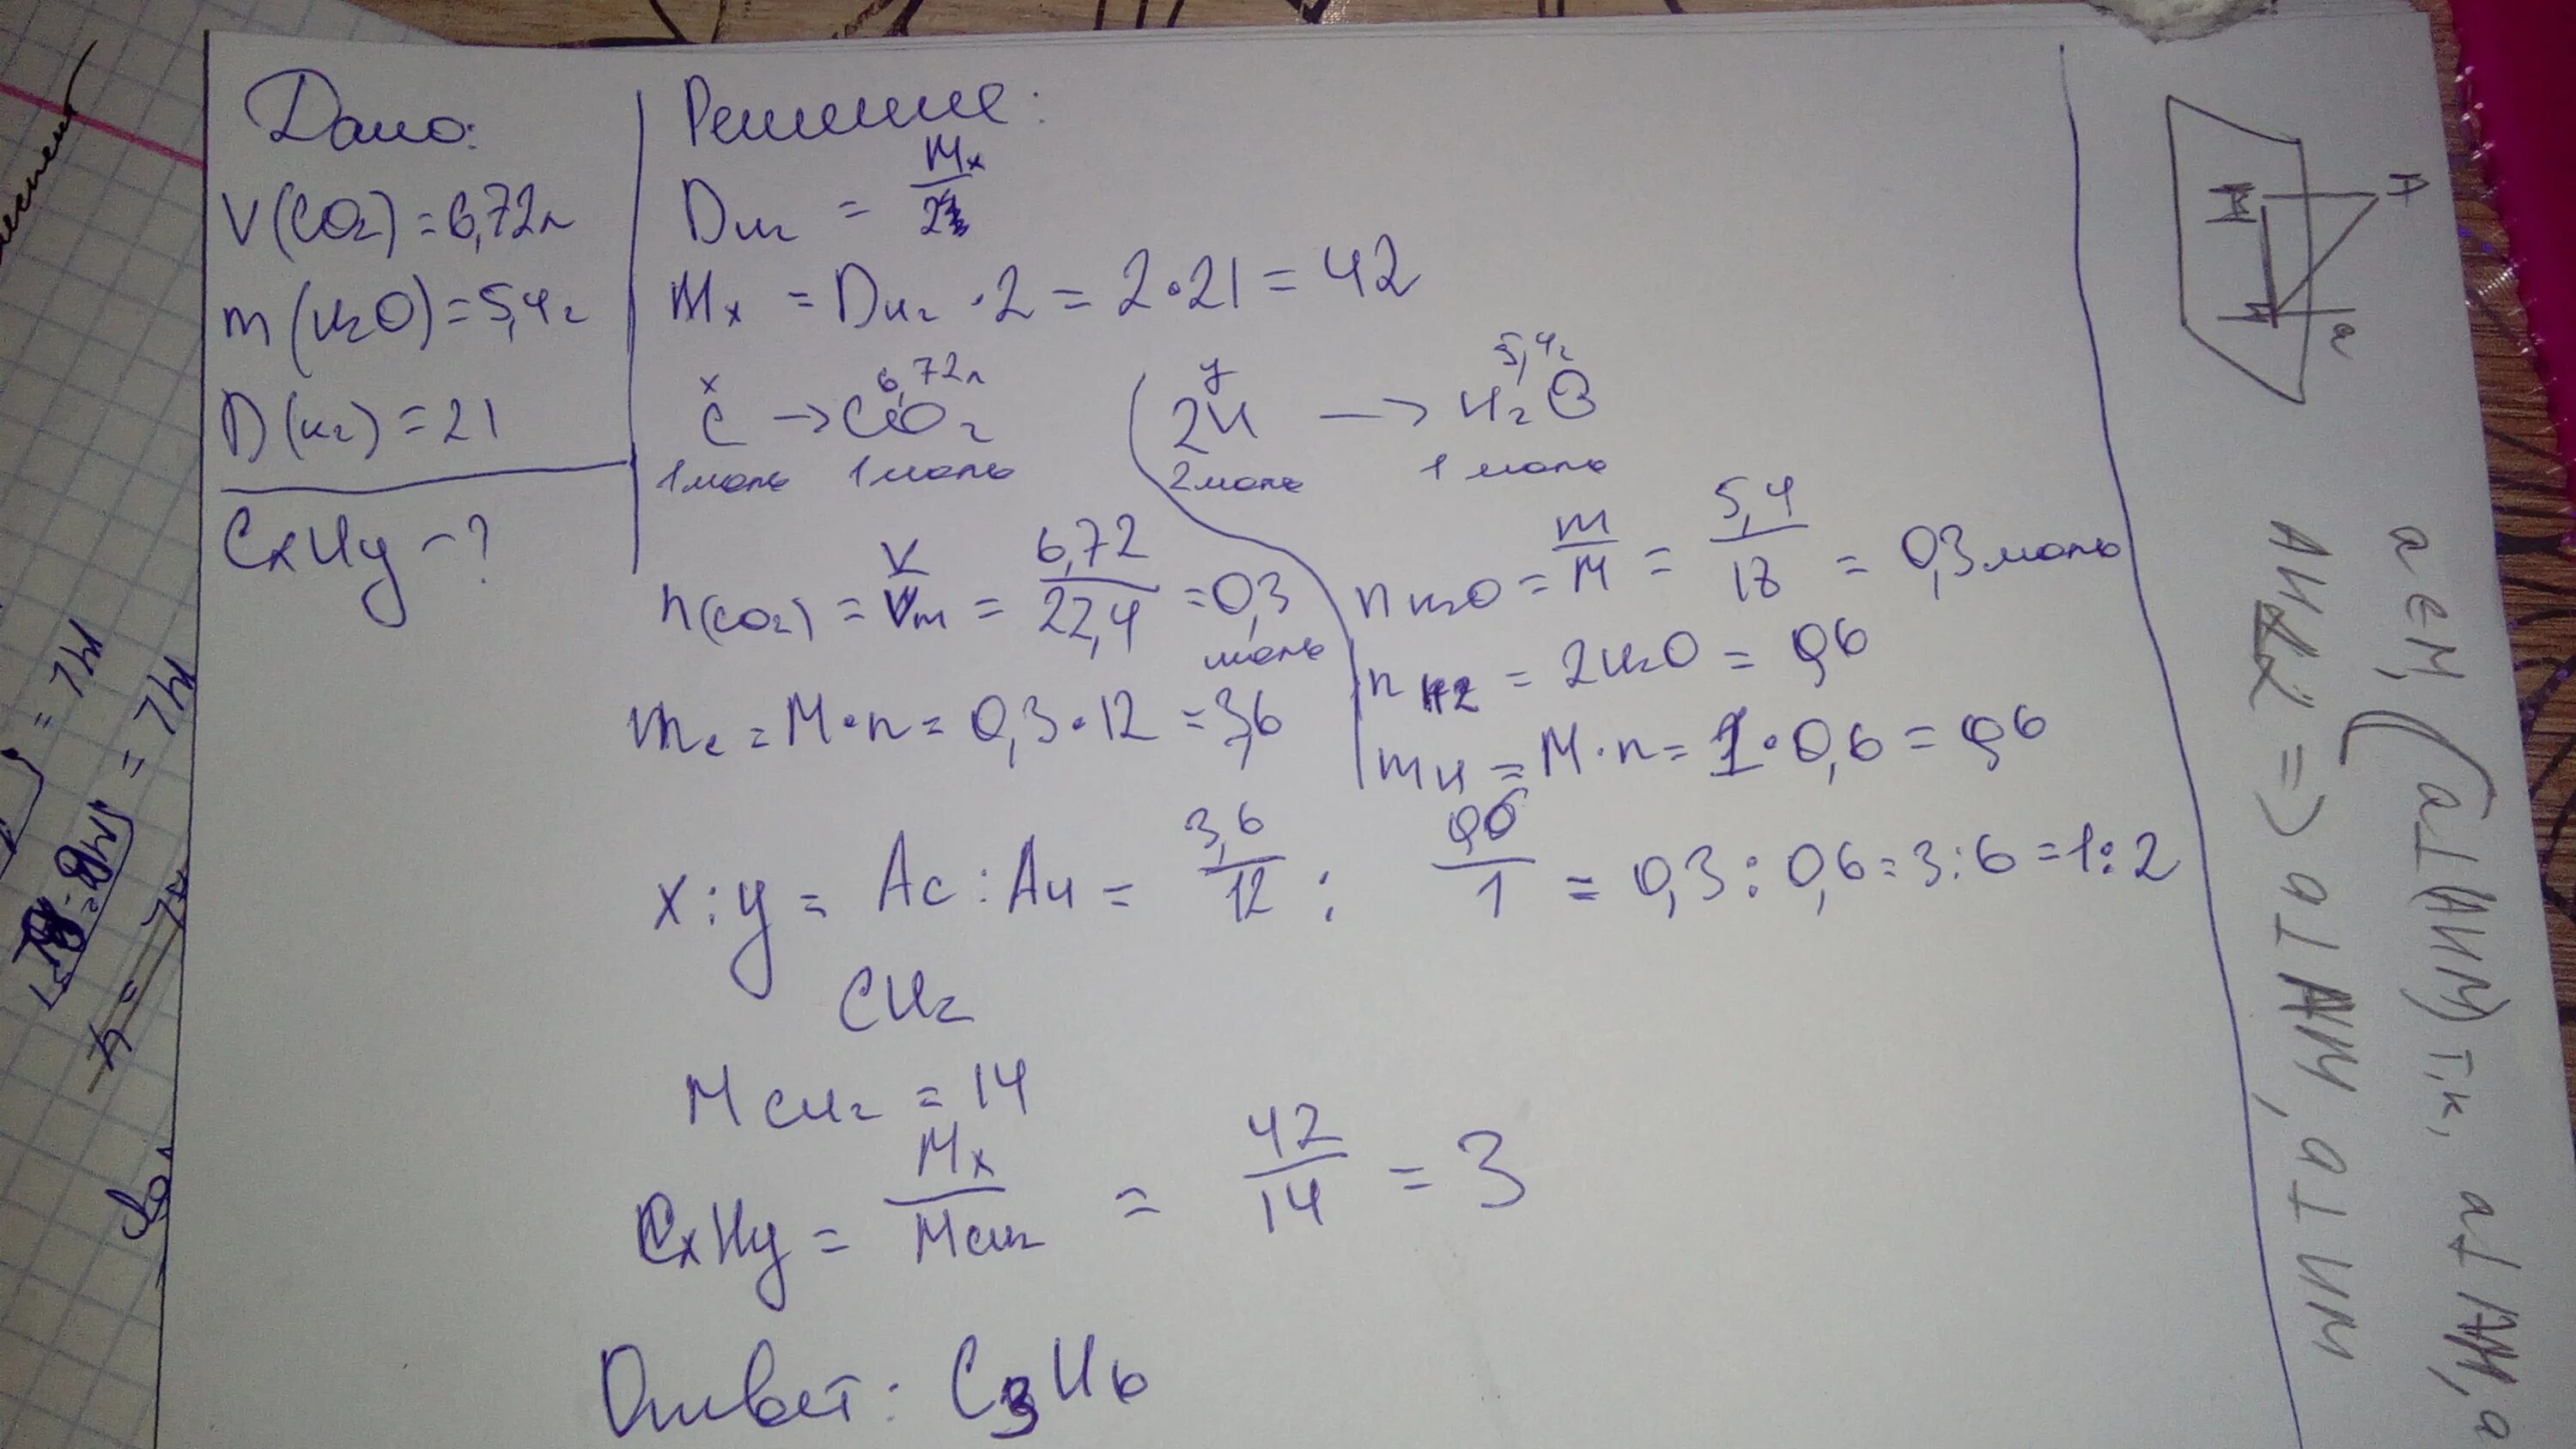 Дано:
V(CO2) = 6,72л
m(H2O) = 5,4г
D(H2) = 21
CxHy - ?
Решение:
DH2 = Mx / 2
Mx = DH2 · 2 = 2 · 21 = 42
x 6,72л
C → CO2
1 моль 1 моль
y 5,4г
2H → H2O
2 моль 1 моль
n(CO2) = V / Vm = 6,72 / 22,4 = 0,3 моль
mc = M · n = 0,3 · 12 = 3,6
nH2O = m / M = 5,4 / 18 = 0,3 моль
nH2 = 2H2O = 0,6
mH = M · n = 1 · 0,6 = 0,6
x : y = Ac : AH = 3,6 / 12 : 0,6 / 1 = 0,3 : 0,6 = 3 : 6 = 1 : 2
CH2
MCH2 = 14
CxHy = Mx / MCH2 = 42 / 14 = 3
Ответ: C3H6
a
a ∈ M, (a ⊥ (AHM) т.к, a ⊥ AM, a
=> a ⊥ AM, a ⊥ HM